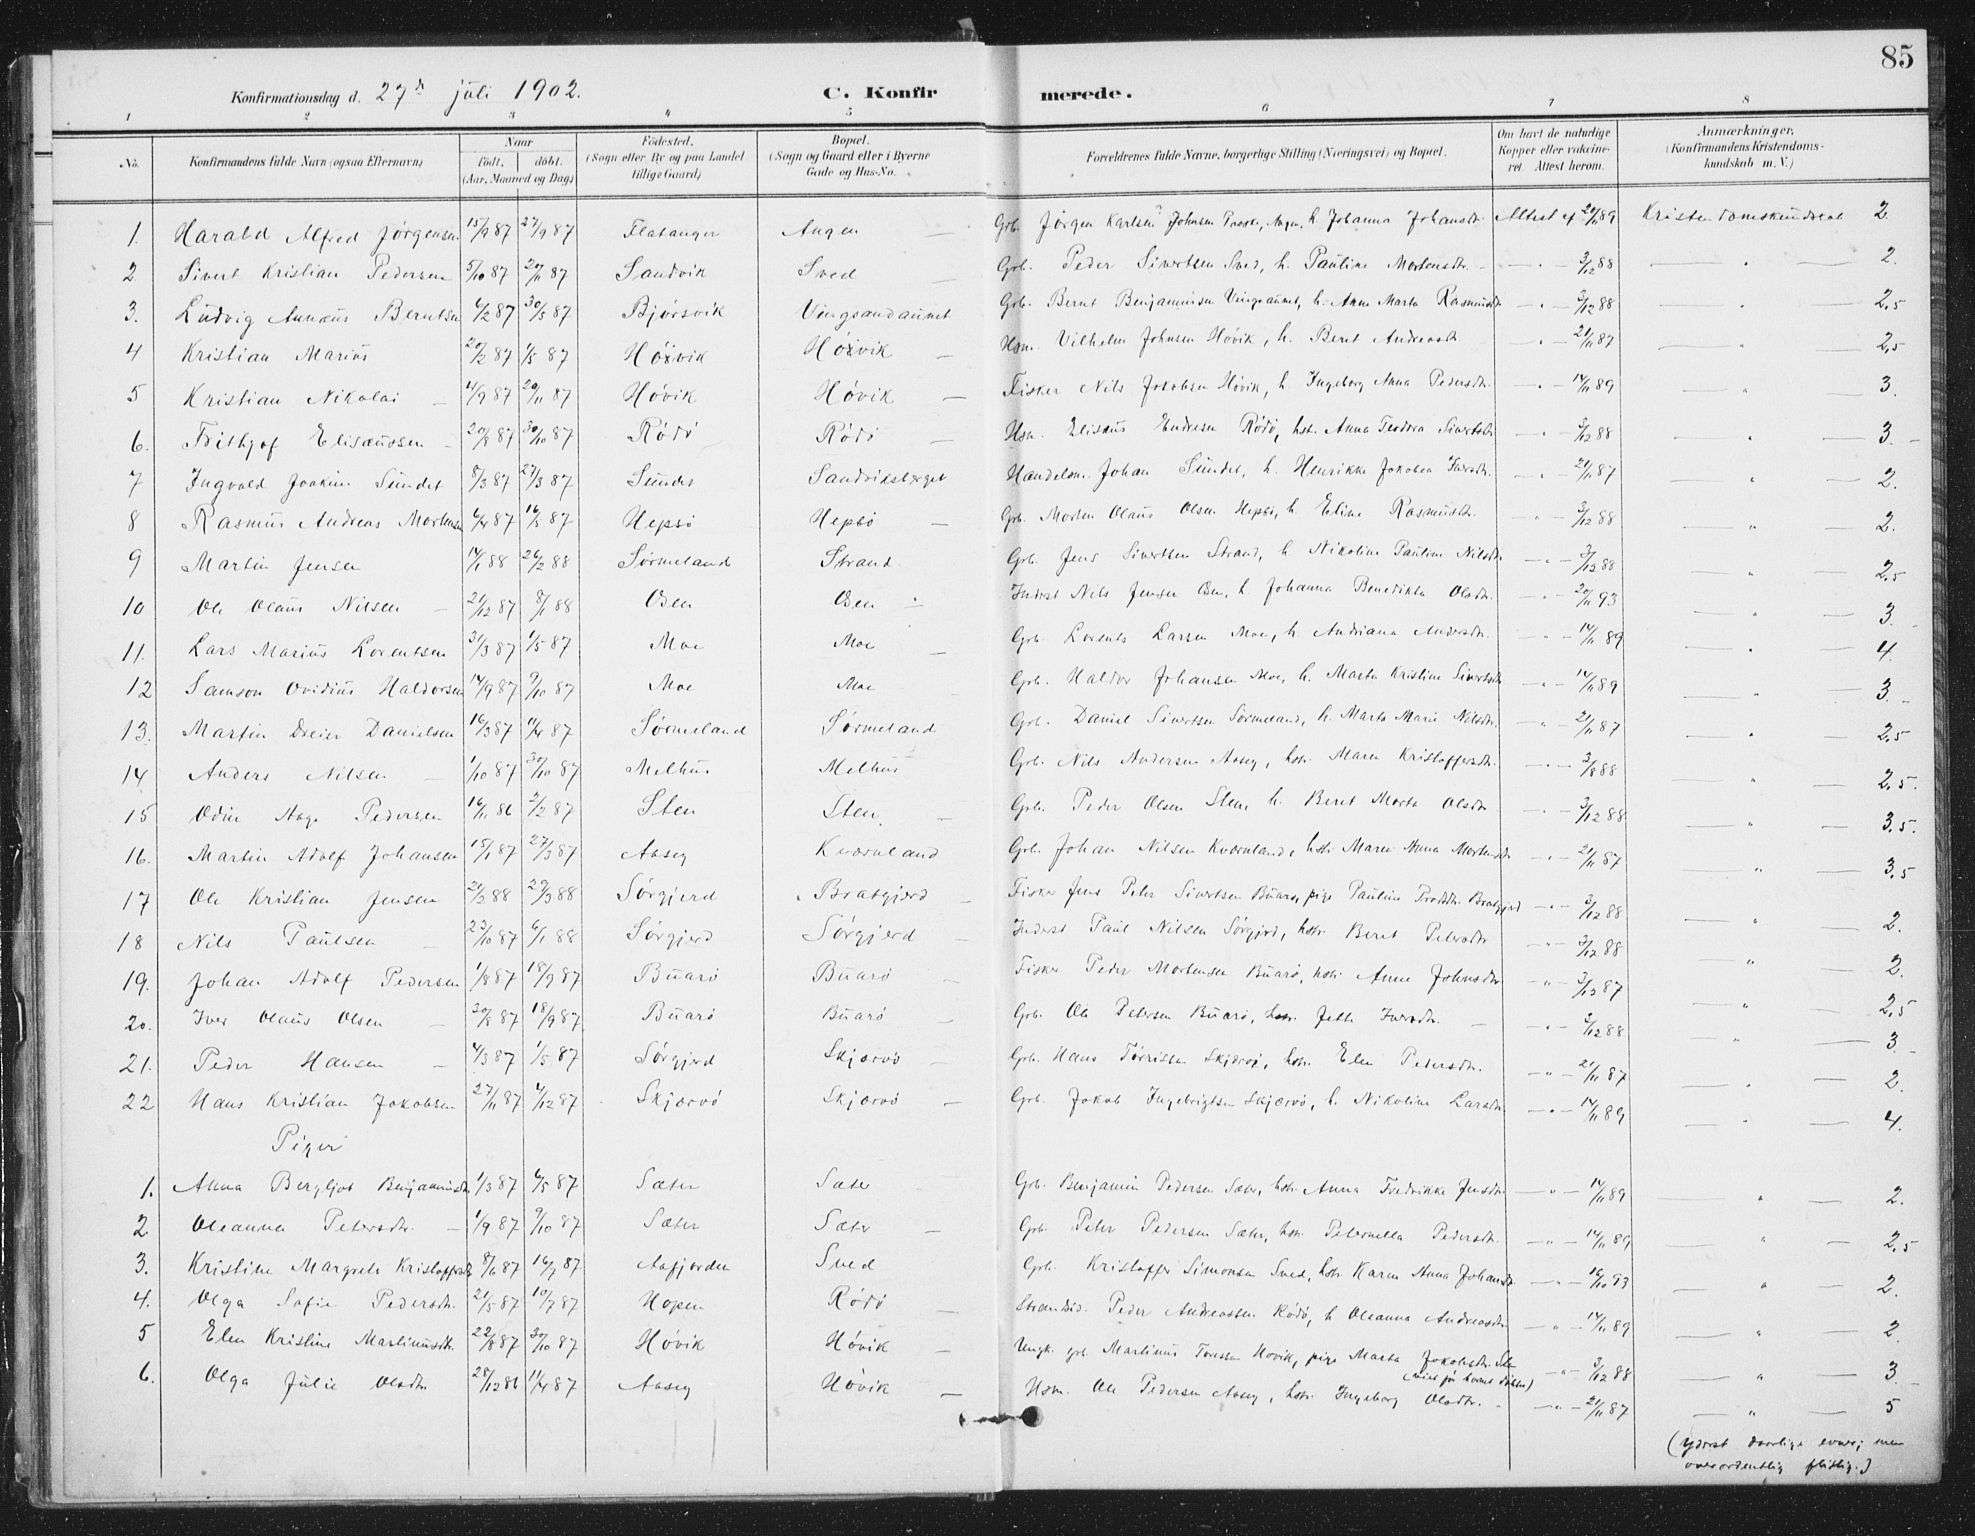 85
Konfirmationsdag d. 27de juli 1902. C. Konfirmerede.
1 2 3 4 5 6 7 8
No. Konfirmandens fulde Navn (ogsaa Efternavn) Naar født, døbt. (Aar, Maaned og Dag) Fødested. (Sogn eller By og paa Landet tillige Gaard) Bopæl. (Sogn og Gaard eller i Byerne Gade og Hus-No. Forældrenes fulde Navne, borgerlige Stilling (Næringsvei) og Bopæl. Om havt de naturlige Kopper eller vakcineret. Attest herom. Anmærkninger. (Konfirmandens Kristendomskundskab m. V.)
1. Harald Alfred Jørgensen 15/9 87 27/9 87 Flatanger Angen Grb. Jørgen Karlsen Johnsen Angen, h. Johanna Johansdtr. Attest af 20/11 89 Kristendomskundskab 2.
2 Sivert Kristian Pedersen 5/10 87 20/11 87 Sandvik Sved Grb. Peder Sivertsen Sved, h. Pauline Mortensdtr. 3/12 88 2.
3. Ludvig Annæus Berntsen 6/2 87 30/5 87 Bjørsvik Vingsandaunet Grb. Bernt Benjaminsen Vingsaunet, h. Anne Marta Rasmusdtr 3/12 88 2,5
4 Kristian Marius 20/2 87 1/5 87 Høvik Høvik Hsm. Vilhelm Johnsen Høvik, h. Beret Andreasdtr. 21/11 87 2,5
5 Kristian Nikolai 4/9 87 20/11 87 Høvik Høvik Fisker Nils Jakobsen Høvik, h. Ingeborg Anna Pedersdtr. 14/11 89 3.
6. Frithjof Elisæussen 20/8 87 30/10 87 Rödö Rödö Hsm. Elisæus Endresen Rödö, hstr. Anna Teodora Sivertsdtr 3/12 88 3.
7 Ingvald Joakim Sundet 8/3 87 27/3 87 Sundet Sandviksberget Handelsm. Johan Sundet, h. Henrikke Jakobea Iversdtr. 21/11 87 2.
8 Rasmus Andreas Mortensen 6/4 87 16/5 87 Hepsö Hepsö Grb. Morten Olaus Olsen Hepsö, h. Eline Rasmusdtr. 3/12 88 2.
9 Martin Jensen 14/1 88 26/2 88 Sörmeland Strand Grb. Jens Sivertsen Strand, h Nikoline Pauline Nilsdtr 3/12 88 2,5
10 Ole Olaus Nilsen 21/12 87 8/1 88 Osen Osen Inderst Nils Jensen Osen, h. Johanna Benedikta Olsdtr. 20/11 93 3.
11. Lars Marius Lorentsen 31/3 87 1/5 87 Moe Moe Grb. Lorents Larsen Moe, h. Andriana Andersdtr. 14/11 89 4.
12 Samson Ovidius Haldorsen 14/9 87 9/10 87 Moe Moe Grb. Haldor Johansen Moe, h. Marta Kristine Sivertsdtr 14/11 89 3.
13. Martin Dreier Danielsen 16/3 87 11/4 87 Sörmeland Sörmeland Grb. Daniel Sivertsen Sörmeland, h. Marta Marie Nilsdtr. 21/11 87 2,5
14 Anders Nilsen 1/10 87 30/10 87 Melhus Melhus Grb. Nils Andersen Aasey, hstr. Maren Kristoffersdtr. 3/8 88 2,5.
15 Odin Aage Pedersen 16/11 86 2/2 87 Sten Sten Grb. Peder Olsen Sten, h. Beret Marta Olsdtr 3/12 88 3,5.
16. Martin Adolf Johansen 15/1 87 27/3 87 Aasey Kværnland Grb. Johan Nilsen Kværnland, hstr. Maren Anna Mortensdtr 21/11 87 3,5
17 Ole Kristian Jensen 21/2 88 29/3 88 Sörgjerd Bratgjerd Fisker Jens Peter Sivertsen Buarö, pige Pauline Bratgjerd 3/12 88 2.
18 Nils Paulsen 23/10 87 6/1 88 Sörgjerd Sörgjerd Inderst Paul Nilsen Sörgjerd, hstr. Beret Petersdtr 3/12 88 2.
19. Johan Adolf Pedersen 1/8 87 18/9 87 Buarö Buarö Fisker Peder Mortensen Buarö, hstr. Anne Johnsdtr 3/12 87 2,5
20. Iver Olaus Olsen 30/8 87 18/9 87 Buarö Buarö Grb. Ole Petersen Buarö, hstr. Jette Iversdtr. 3/12 88 3.
21. Peder Hansen 4/3 87 1/5 87 Sörgjerd Skjærvö Grb. Hans Törrissen Skjærvö, hstr. Elen Petersdtr. 21/11 87 2.
22 Hans Kristian Jakobsen 27/11 87 4/12 87 Skjærvö Skjærvö Grb. Jakob Ingebrigtsen Skjærvö, h. Nikoline Larsdtr. 14/11 89 4.
Piger
1. Anna Bergljot Benjaminsdtr 1/3 87 6/5 87 Sæter Sæter Grb. Benjamin Pedersen Sæter, hstr. Anna Fredrikke Jensdtr. 14/11 89 2.
2. Oleanna Petersdtr. 1/9 87 9/10 87 Sæter Sæter Grb. Peter Pedersen Sæter, hstr. Peternella Pedersdtr. 14/11 89 2,5
3. Kristine Margrete Kristoffersdtr 8/6 87 16/7 87 Aafjorden Sved Grb. Kristoffer Simonsen Sved, hstr. Karen Anna Johansdtr. 16/10 93 2.
4. Olga Sofie Pedersdtr. 21/5 87 10/7 87 Hopen Rödö Strandsid. Peder Andreassen Rödö, h Oleanna Andreasdtr. 14/11 89 2.
5 Elen Kristine Martinusdtr. 22/8 87 30/10 87 Høvik Høvik Ungk. grb. Martinus Høvik, pige Marta Jakobsdtr. 3/12 88 3.
6. Olga Julie Olsdtr 28/12 86 11/4 87 Aasey Høvik Hsm. Ole Pedersen Aasey, hstr. Ingeborg Olsdtr. 21/11 87 5
(yderst daarlige evner; men
overordentlig flittig.)